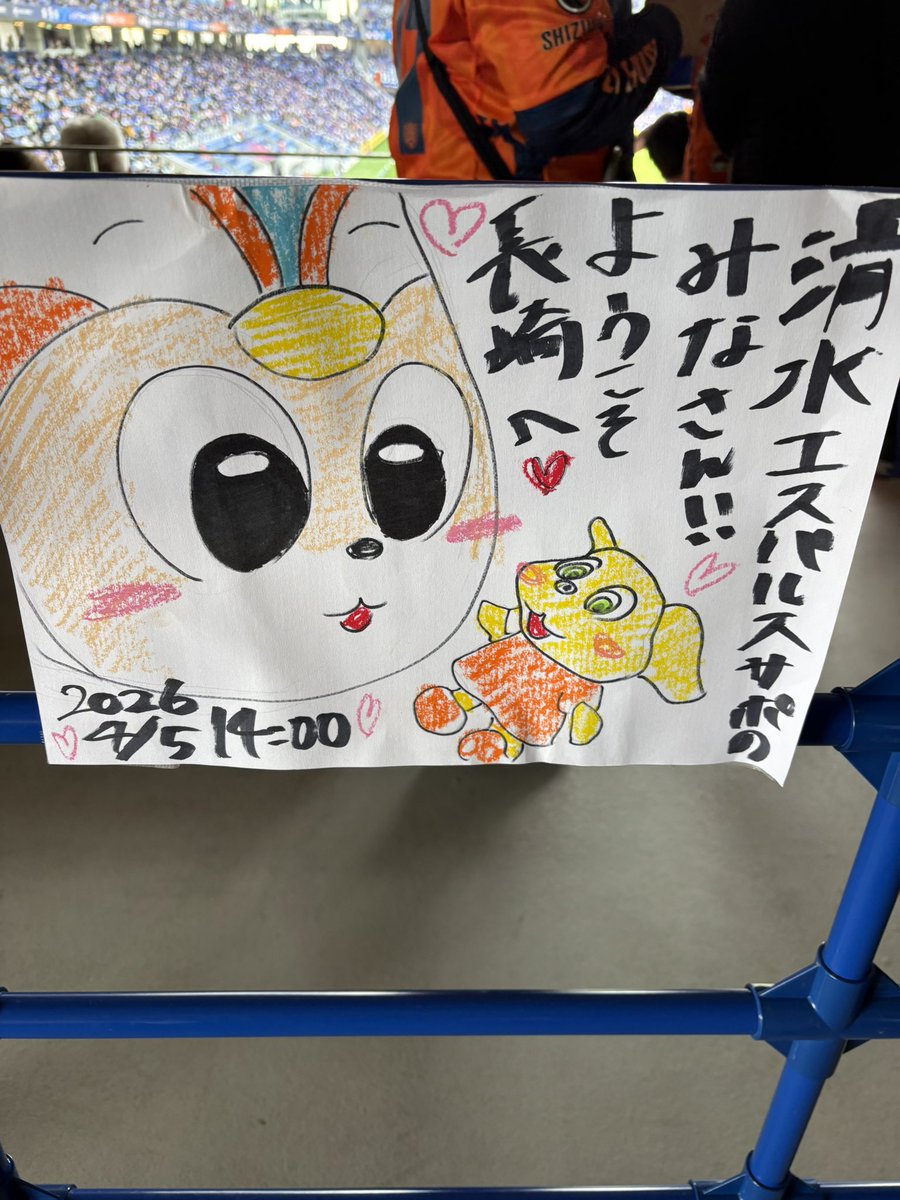 清水エスパルスサポの
みなさん!!
ようこそ
長崎へ
2026
4/5 14:00
SHIZU